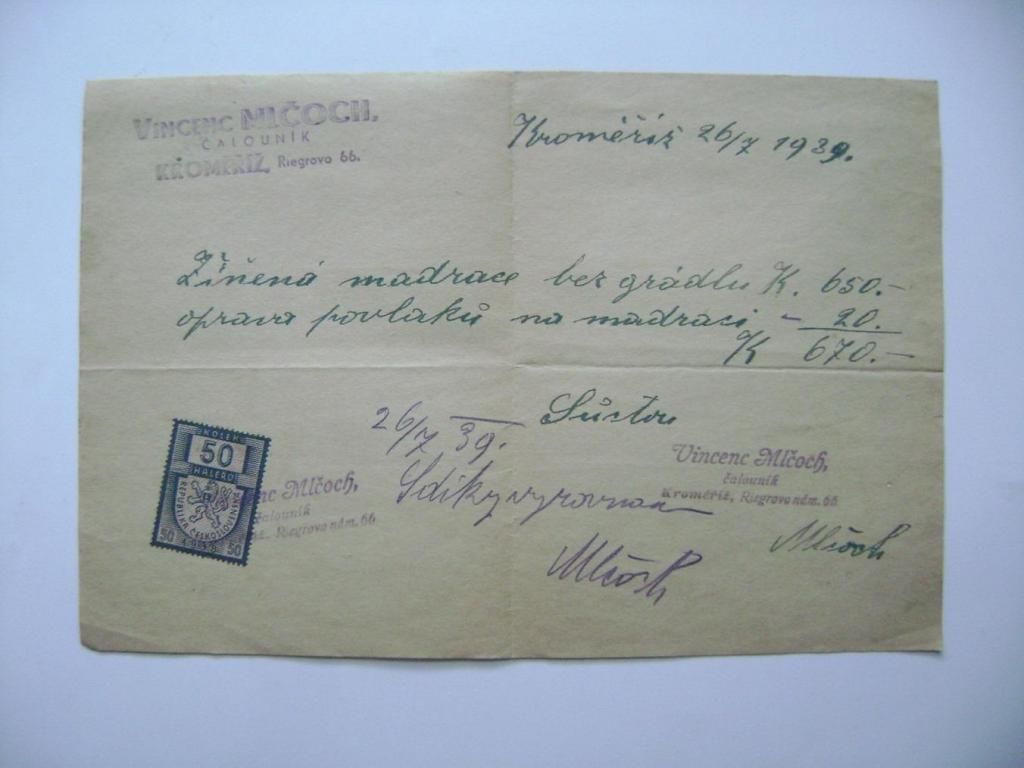 Vincenc MLČOCH,
ČALOUNÍK
KROMĚŘÍŽ, Riegrovo 66.
Kroměříž 26/7 1939.
Žíněná madrace bez grádlu K. 650.-
oprava povlaků na madraci - 20.
K 670.-
26/7 39.
S díky vyrovnán
Mlčoch
Vincenc Mlčoch,
čalouník
Kroměříž, Riegrovo nám. 66
Mlčoch
KOLEK
50
HALÉŘŮ
REPUBLIKA ČESKOSLOVENSKÁ
50 50
nc Mlčoch,
čalouník
Riegrovo nám. 66